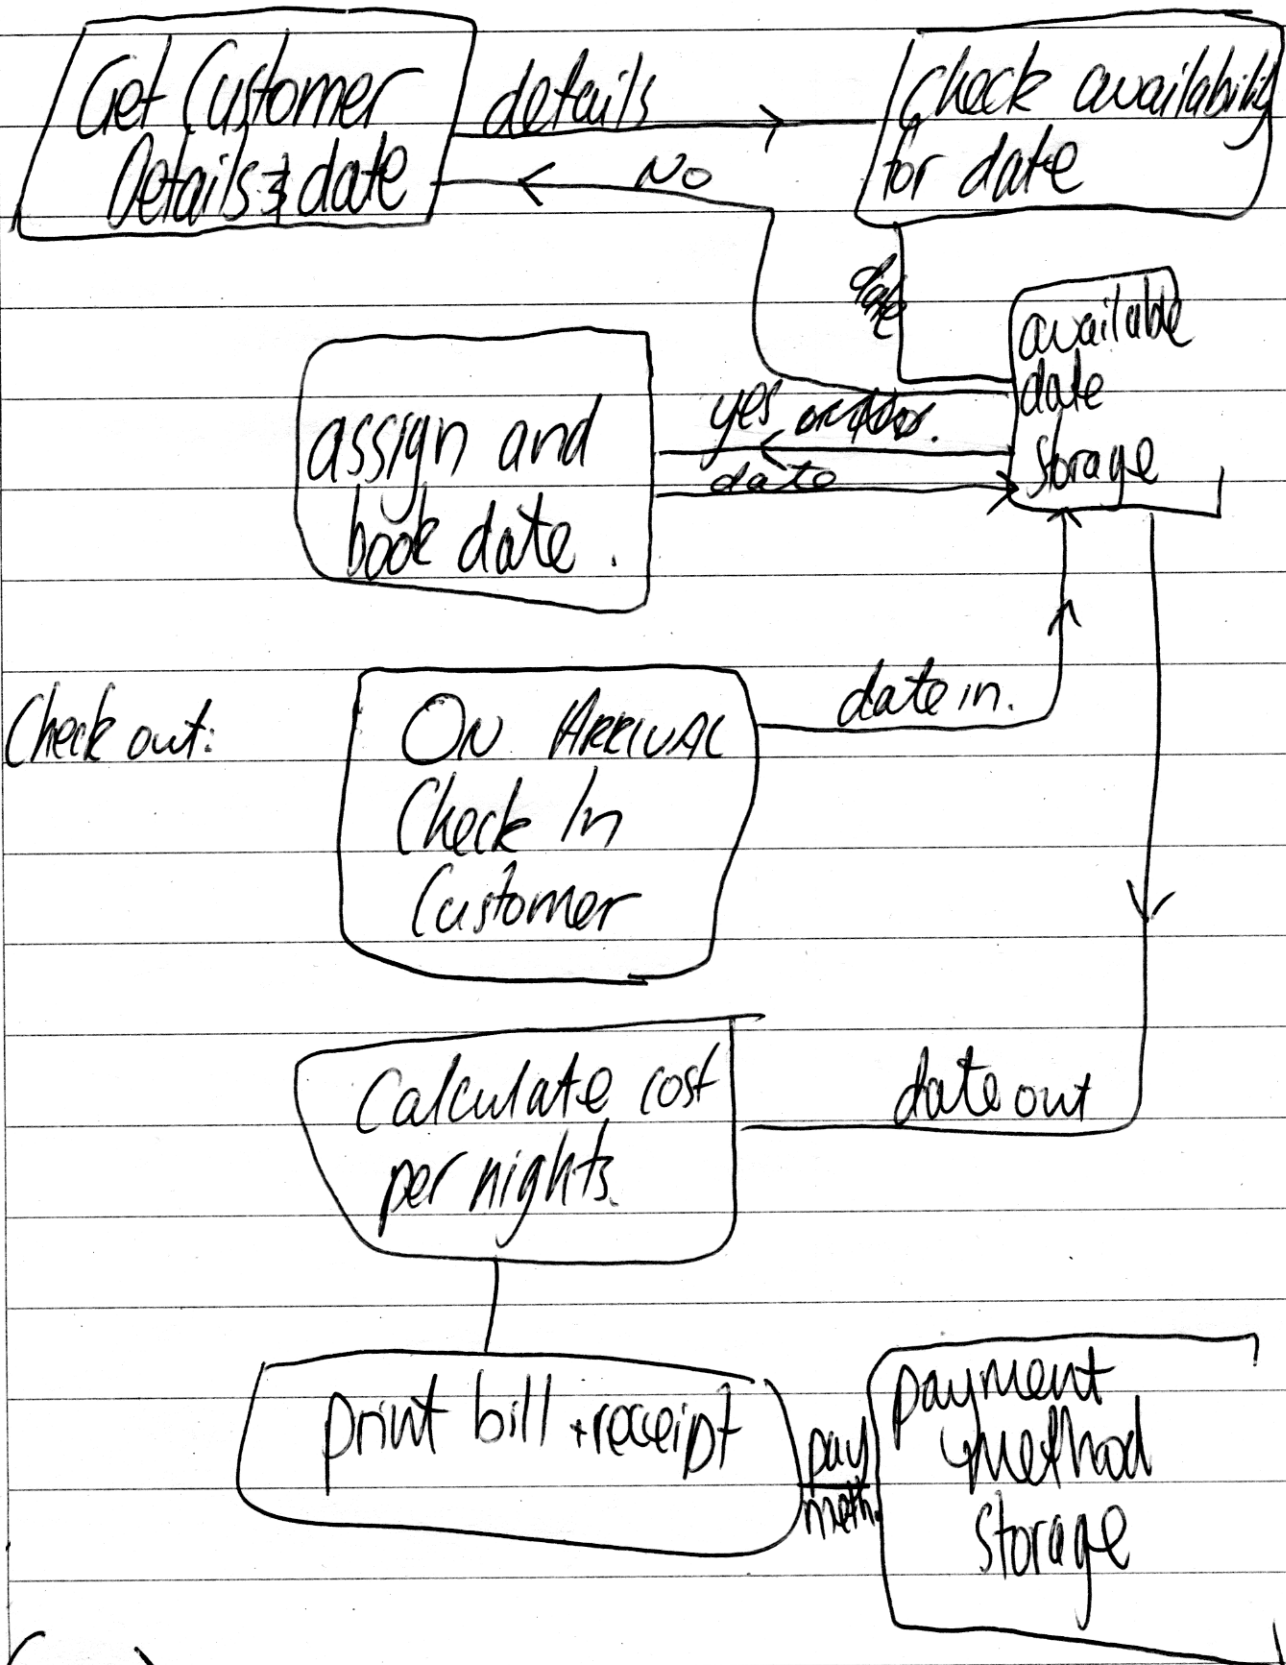 Get Customer
Details & date
details
No
Check availability
for date
date
available
date
storage
yes
date
assign and
book date.
Check out:
ON ARRIVAL
Check In
Customer
date in.
Calculate cost
per nights.
date out
print bill + receipt
pay
meth.
payment
method
storage